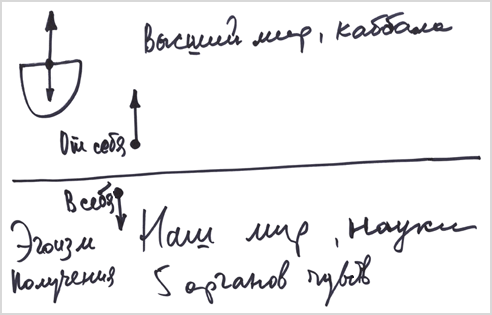 Высший мир, каббала
От себя
В себя
Эгоизм
получения
Наш мир, науки
5 органов чувств